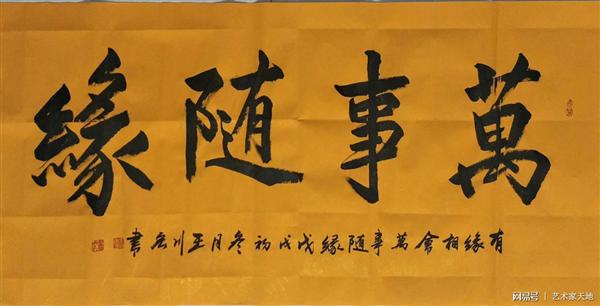 萬事随緣
有緣相會萬事随緣戊戌初冬月王川書
网易号 | 艺术家天地